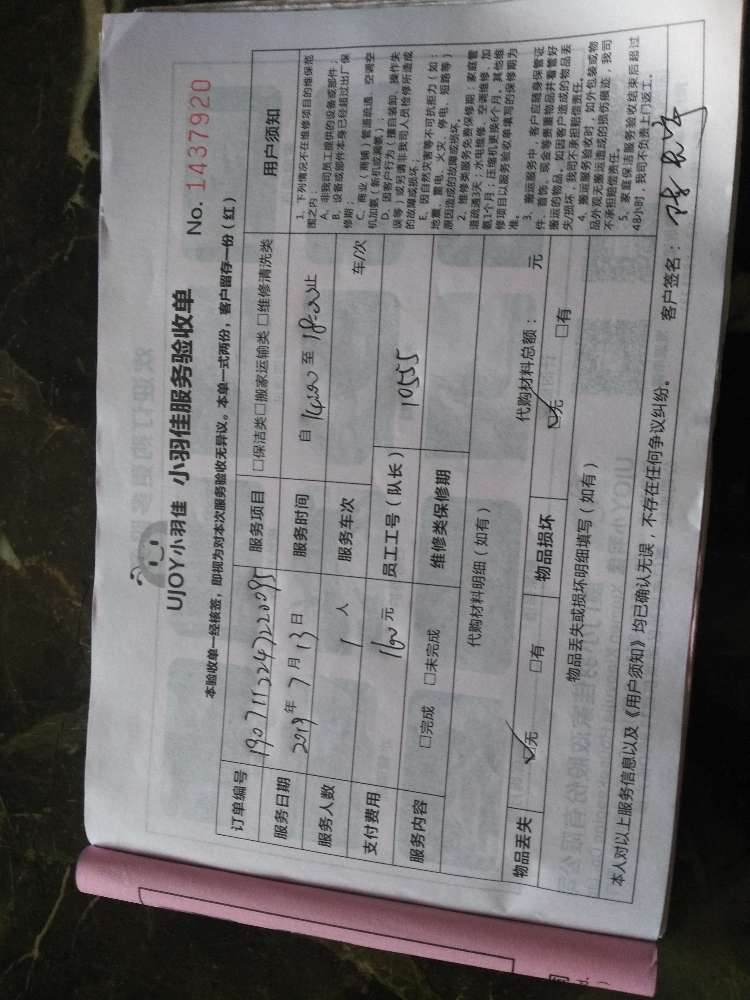 UJOY小羽佳 小羽佳服务验收单
No. 1437920
本验收单一经核签，即视为对本次服务验收无异议。本单一式两份，客户留存一份（红）
订单编号
服务项目 □保洁类□搬家运输类□维修清洗类
用户须知
服务日期 2019年7月13日
服务时间 自 14:00 至 18:00 止
服务人数 1 人
服务车次 车/次
支付费用 160元
员工工号（队长） 10555
服务内容 □完成 □未完成
维修类保修期
代购材料明细（如有）
代购材料总额： 元
物品丢失 ☑无 □有
物品损坏 ☑无 □有
物品丢失或损坏明细填写（如有）
1. 下列情况不在维修项目的维保范
围之内：
A. 非我司员工提供的设备或部件；
B. 设备或部件本身已经超过出厂保
修期；
C. 商业（商铺）管道疏通、空调空
机加氨（新机或漏氨）；
D. 因客户行为（擅自装卸、操作失
误等）或另请非我司人员检修所造成
的故障或损坏；
E. 因自然灾害等不可抗拒力（如：
地震、雷电、火灾、停电、短路等）
原因造成的故障或损坏。
2. 维修类服务免费保修期：家庭管
道疏通3天；水电维修、空调维修、加
氨1个月；压缩机更换6个月。其他维
修项目以服务验收单填写的保修期为
准。
3. 搬运服务中，客户应随身保管证
件、首饰、现金等贵重物品并看管好
搬运的物品，如因客户造成的物品丢
失/损坏，我司不承担赔偿责任。
4. 搬运服务验收时，如外包装或物
品外观无搬运造成的损伤痕迹，我司
不承担赔偿责任。
5. 家庭保洁服务验收结束后超过
48小时，我司不负责上门返工。
本人对以上服务信息以及《用户须知》均已确认无误，不存在任何争议纠纷。
客户签名：